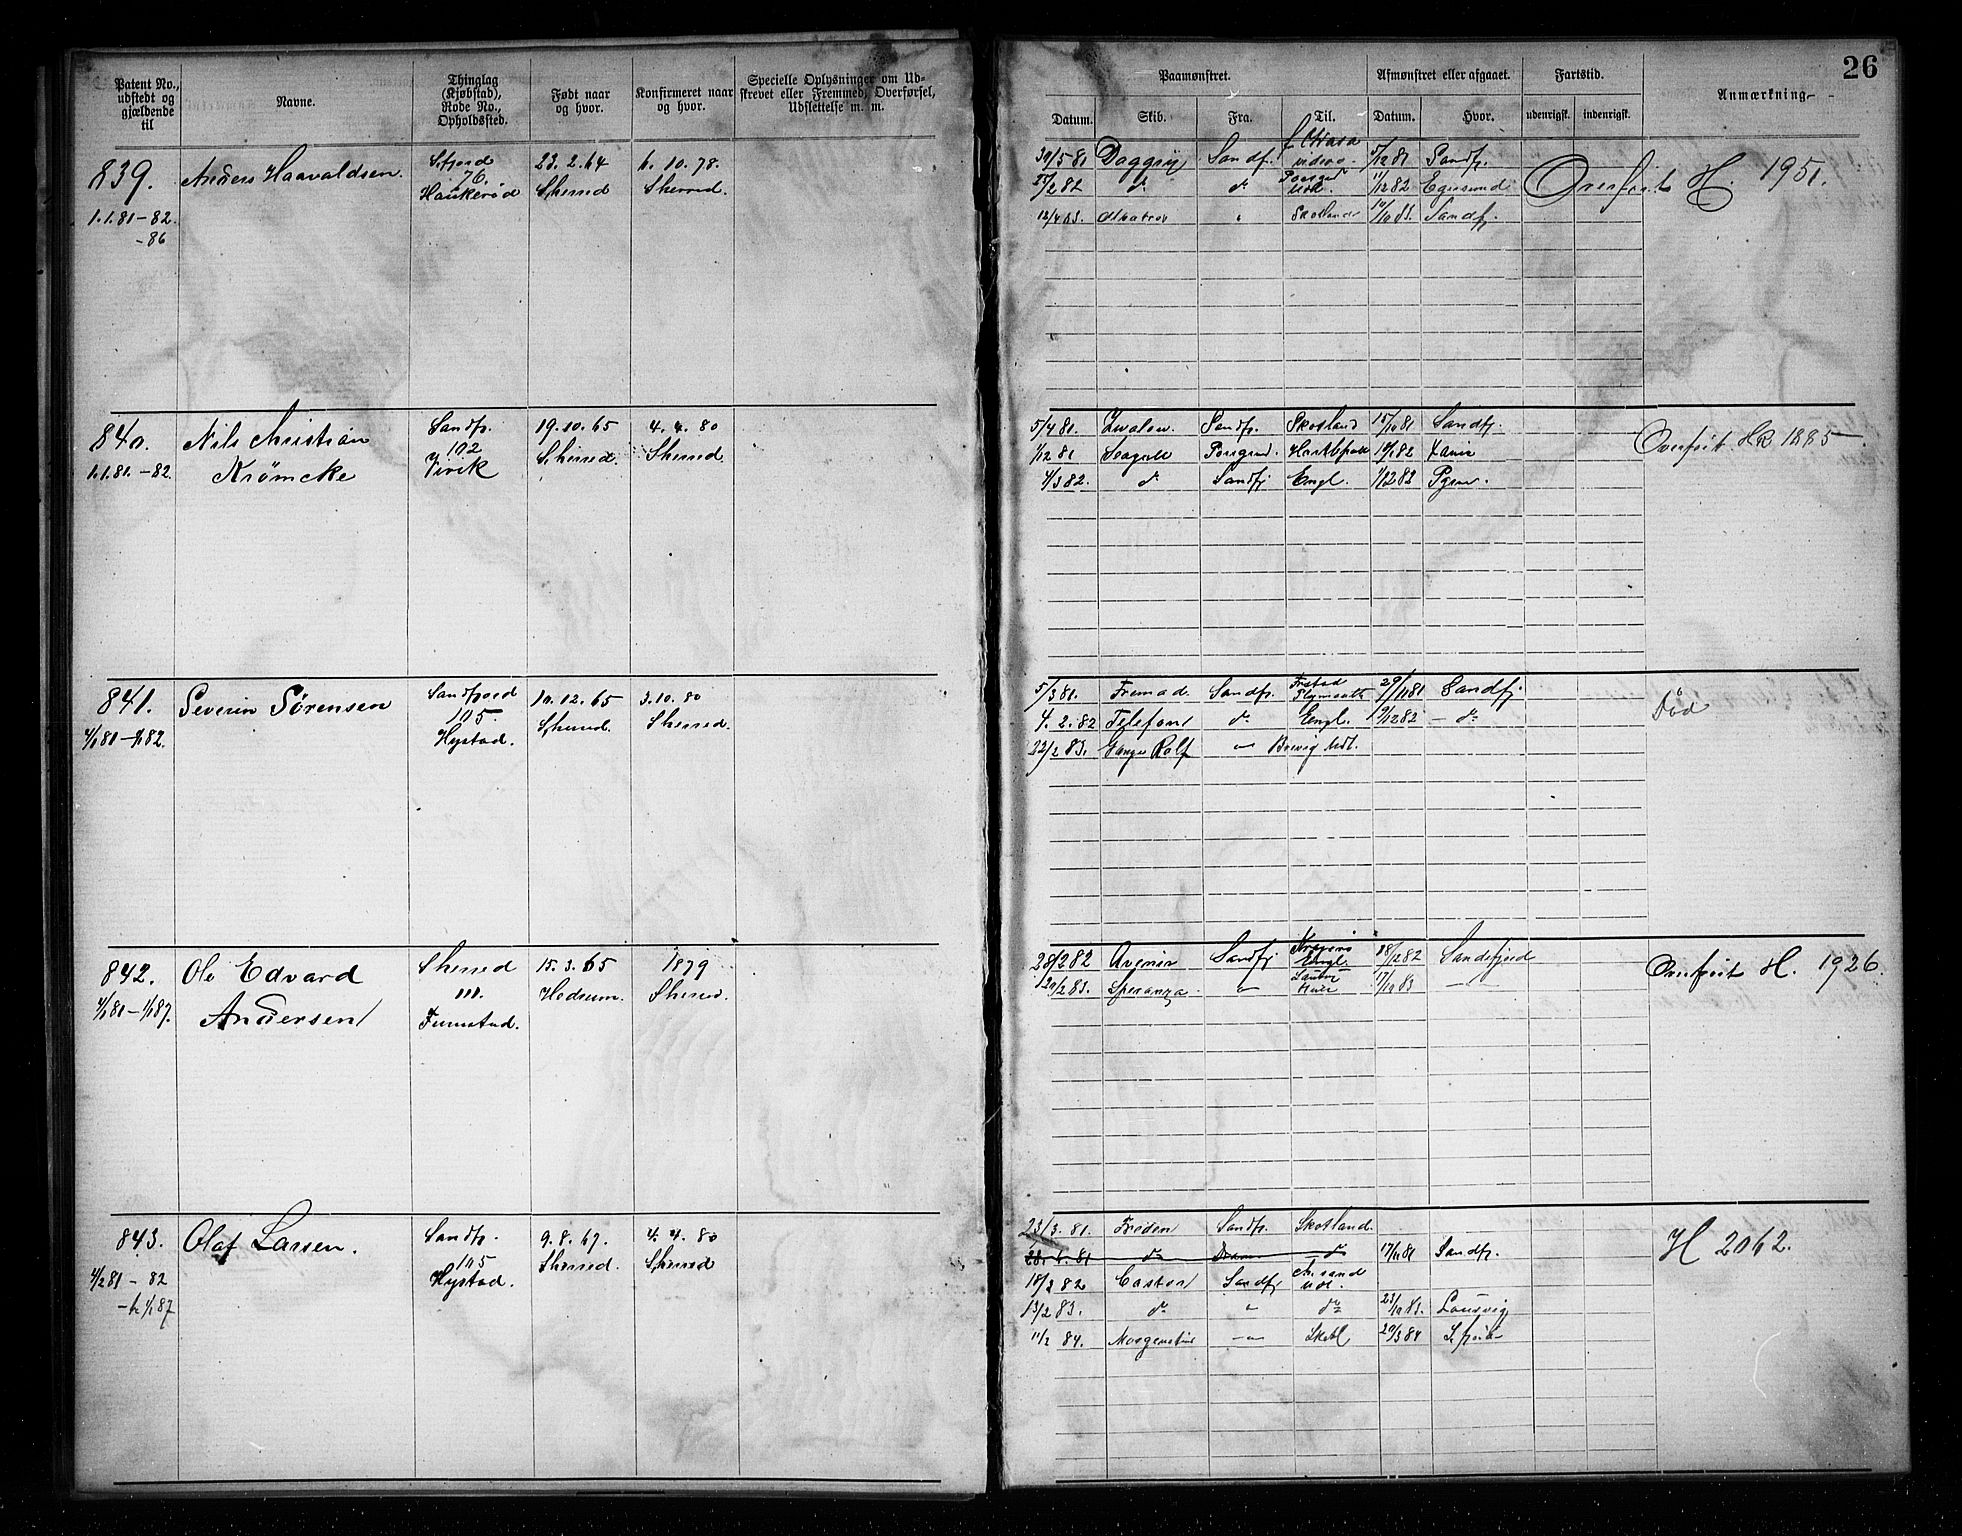 26
Patent No., udstedt og gjældende til
Navne.
Thinglag (Kjøbstad), Rode No., Opholdssted.
Født naar og hvor.
Konfirmeret naar og hvor.
Specielle Oplysninger om Udskrevet eller Fremmed, Overførsel, Udslettelse m. m.
Paamønstret.
Afmønstret eller afgaaet.
Fartstid.
Anmærkning.
Datum.
Skib.
Fra.
Til.
Datum.
Hvor.
udenrigsk.
indenrigsk.
839.
1.1.81 – 82.
– 86
Anders Haavaldsen.
S.fjord
76.
Haukerød
23.2.64
Sherred
6.10.78.
Sherred.
30/5 81 Daggry Sandf.
5/12 81 Sandfj.
d° d°
11/12 82 Egersund
12/4 83. Skotland 10/10 83. Sandfj.
Overført H. 1951.
840.
1.1.81. – 82.
Nils Christian
Krömcke
Sandfj.
102
Virik
19.10.65
Sherred.
4.4.80
Sherred.
5/4 81. Svalen. Sandfj. Skotland 15/10 81 Sandfj.
1/12 81 Seagull Porsgrund.
4/3 82. d° Sandfj Engl. 1/12 82
Overført HR 1885
841.
4/1 81 – 1/1 82.
Severin Sørensen
Sandfjord
105.
Hystad.
10.12.65
Sherred.
3.10.80
Sherred.
5/3 81. Fremad. Sandfj. Plymouth 29/11 81 Sandfj.
4.2.82 Telefon d° Engl. 9/12 82 – d°
22/2 83. Gange Rolf Brevig Udl.
Død
842.
4/1 81 – 1/1 87.
Ole Edvard
Andersen
Sherred
111.
Furustad.
15.3.65
Hedrum.
1879
Sherred.
28/2 82 Avenir Sandfj Kragerø Engl. 18/12 82 Sandefjord
20/2 83. Speranza 17/10 83
Overført H. 1926.
843.
4/2 81 – 82
– 1/1 87
Olaf Larsen.
Sandfj.
105
Hystad.
9.8.67.
Sherred.
4.4.80
Sherred
23/3. 81. Frøden Sandfj. Skotland.
28.4.81 d° d° 17/11 81 Sandfj.
18/3 82 Castor Sandfj Chrsand Udl.
13/2 83. d° " d° 23/10 83. Laurvig
11/2 84. Skotl 20/3 84
H 2062.